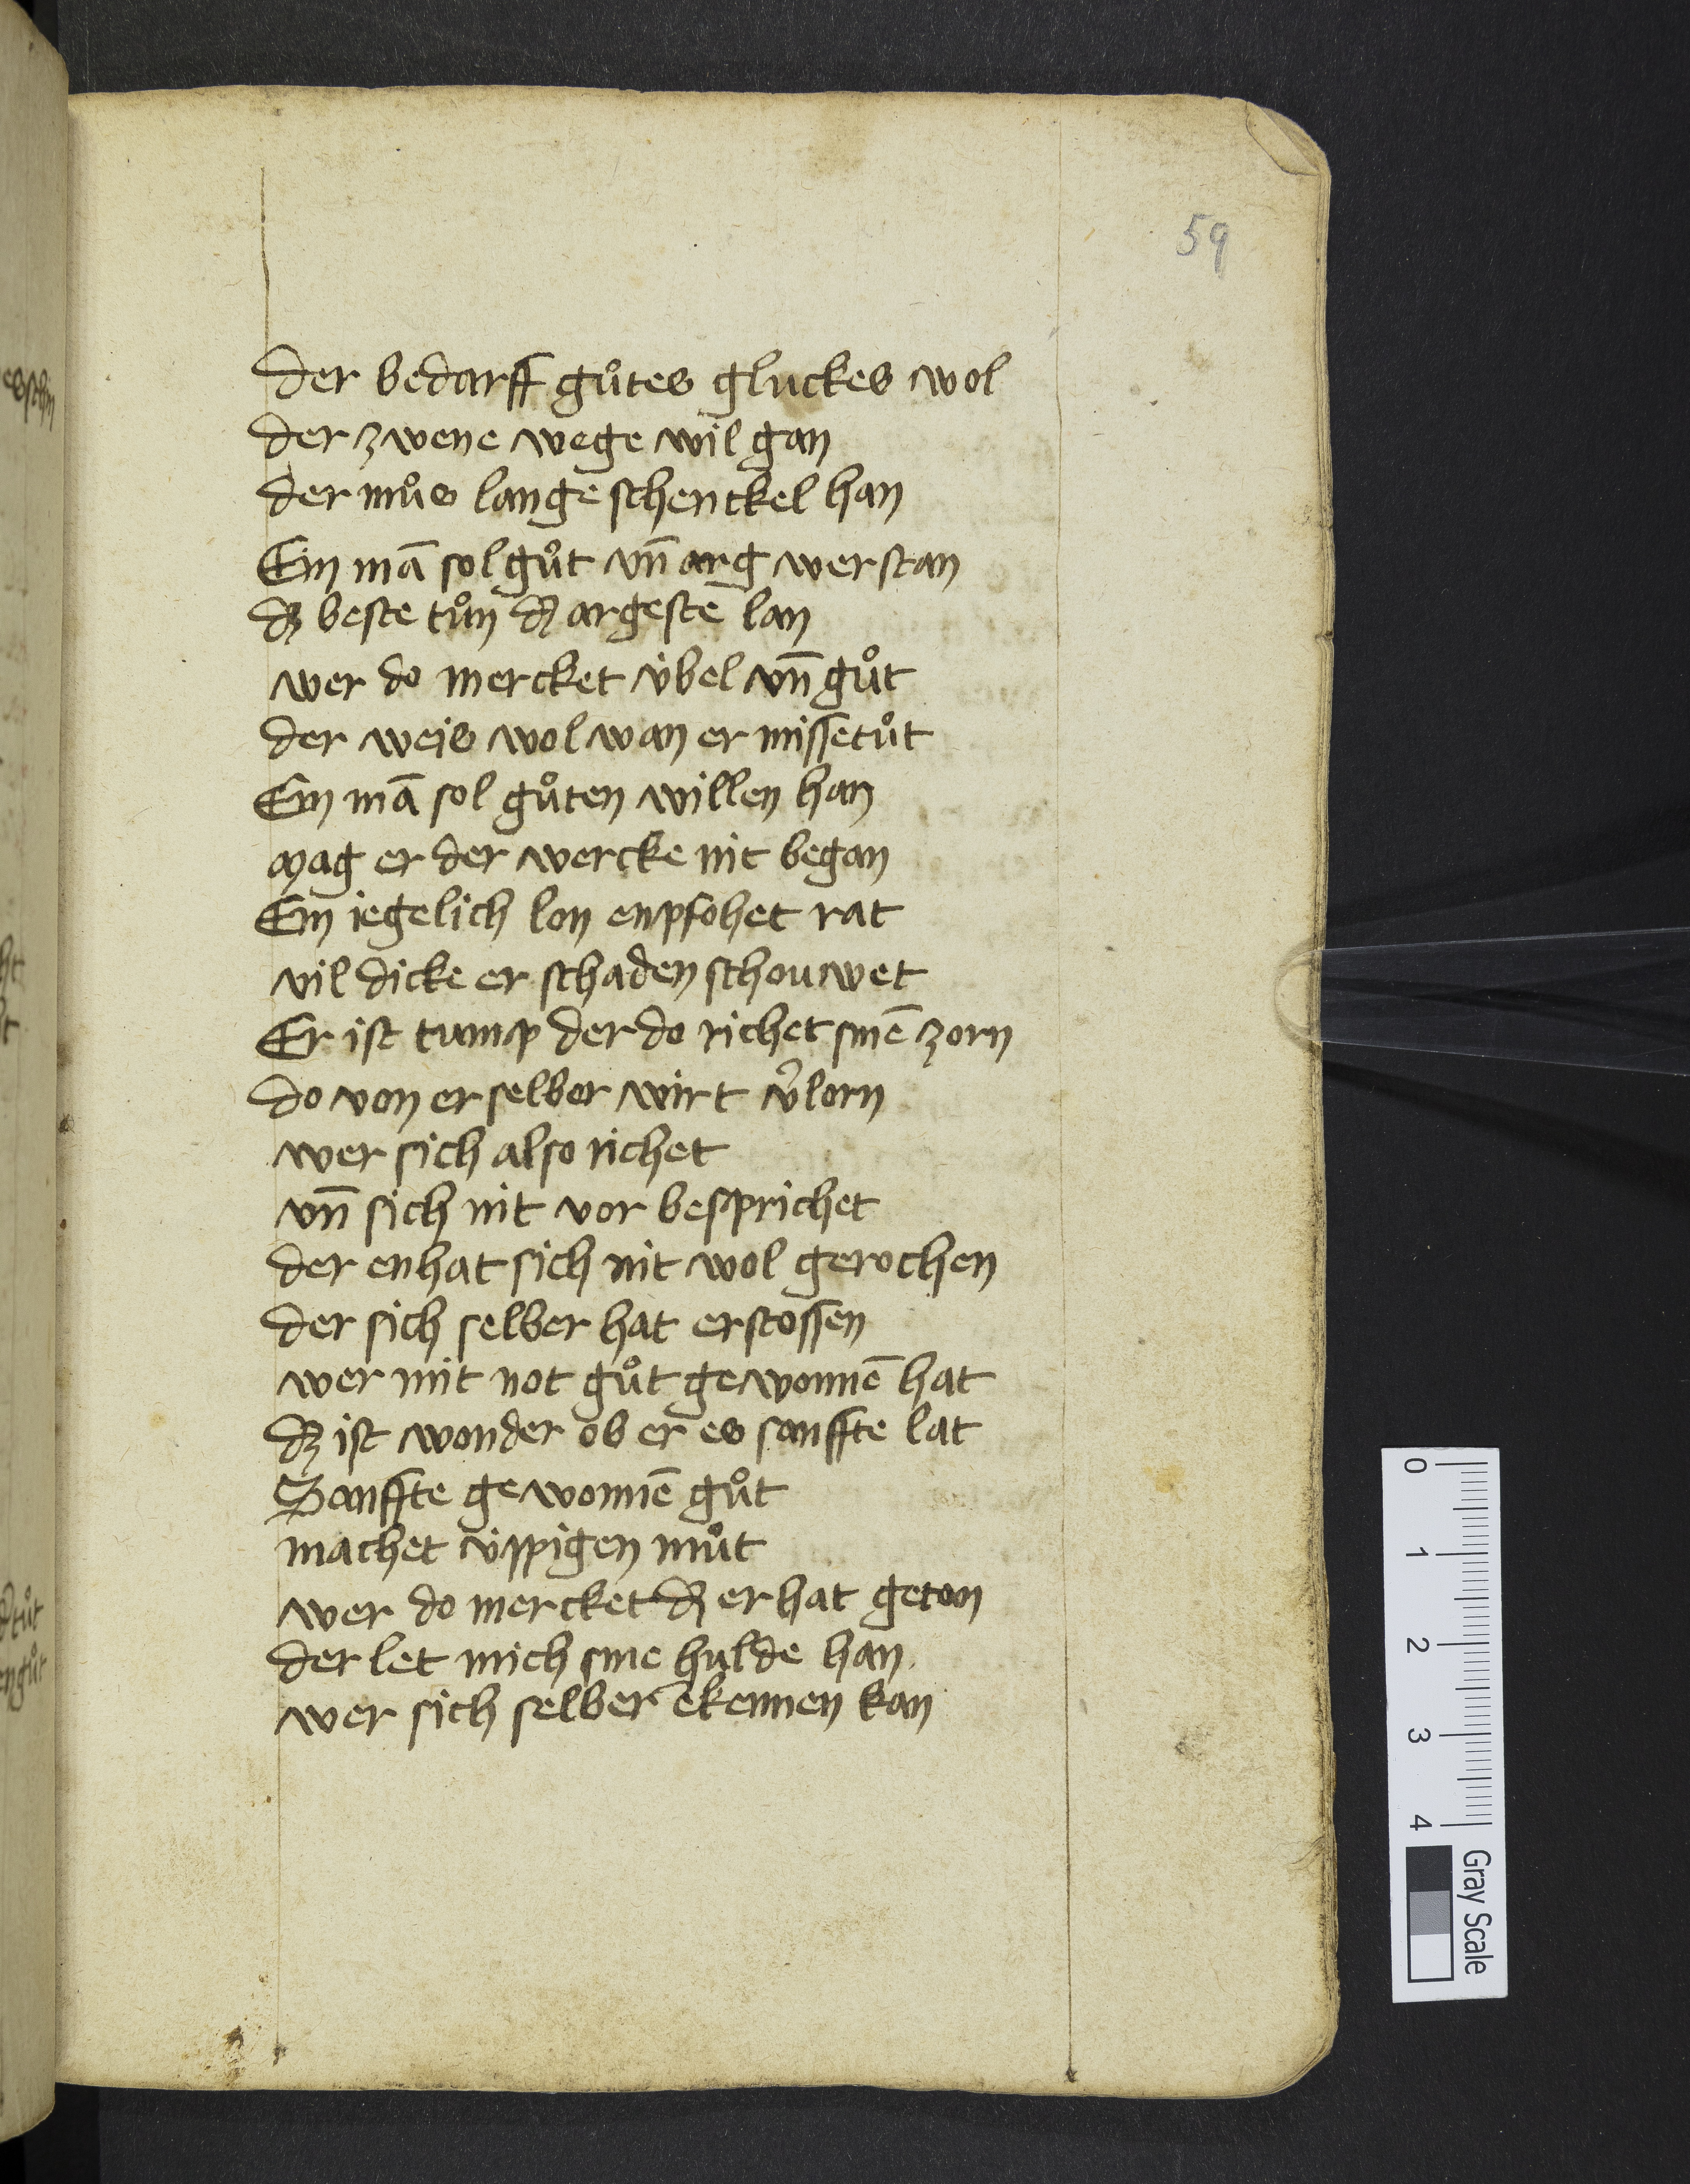 59
der bedarff guͦtes gluckes wol
der zwene wege wil gan
der muͦs lange schenckel han
Ein mā sol guͦt vn̄ arg werstan
dz beste tuͦn dz argestē lan
wer do mercket v̍bel vn̄ guͦt
der weis wol wan er missetuͦt
Ein mā sol guͦten willen han
mag er der wercke nit began
Ein iegelich lon enpfohet rat
vil dicke er schaden schouwet
Er ist tump der do richet sinē zorn
do von er selber wirt v͛lorn
wer sich also richet
vn̄ sich nit vor besprichet
der enhat sich nit wol gerochen
der sich selber hat erstossen
wer mit not guͦt gewonnē hat
dz ist wonder ob er es sanffte lat
Sanffte gewonnē guͦt
machet v̍ppigen muͦt
wer do mercket dz er hat geton
der let mich sine hulde han
wer sich selber ekennen kan
0
1
2
3
4
Gray Scale